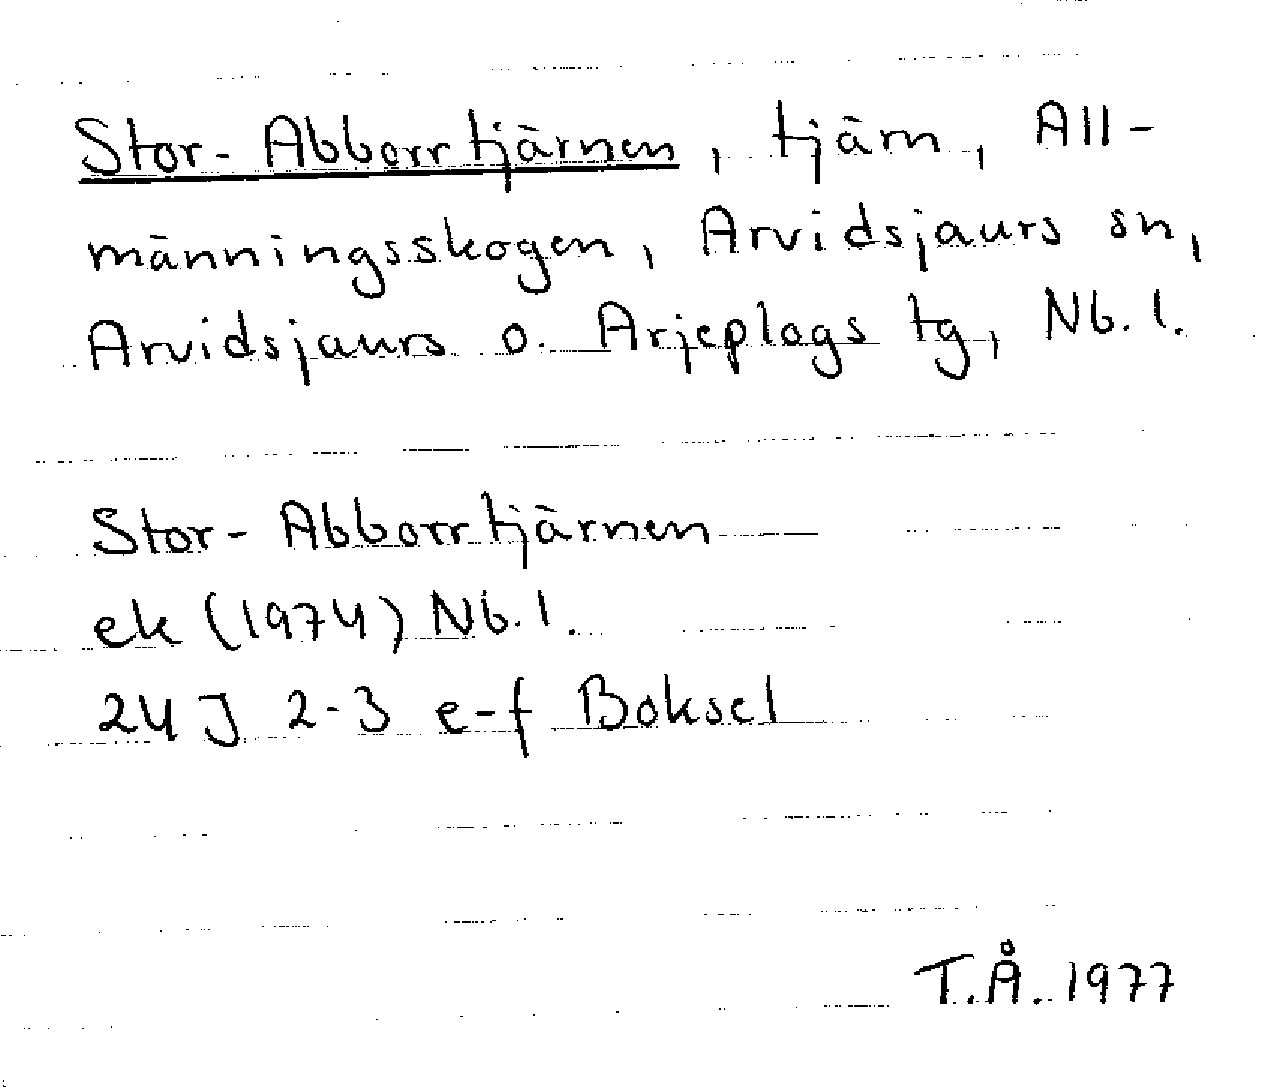 Stor-Abborrtjärnen, tjärn, All-
männingsskogen, Arvidsjaurs sn,
Arvidsjaurs o. Arjeplogs tg, Nb. l.
Stor-Abborrtjärnen
ek (1974) Nb. l.
24 J 2-3 e-f Boksel
T.Å. 1977